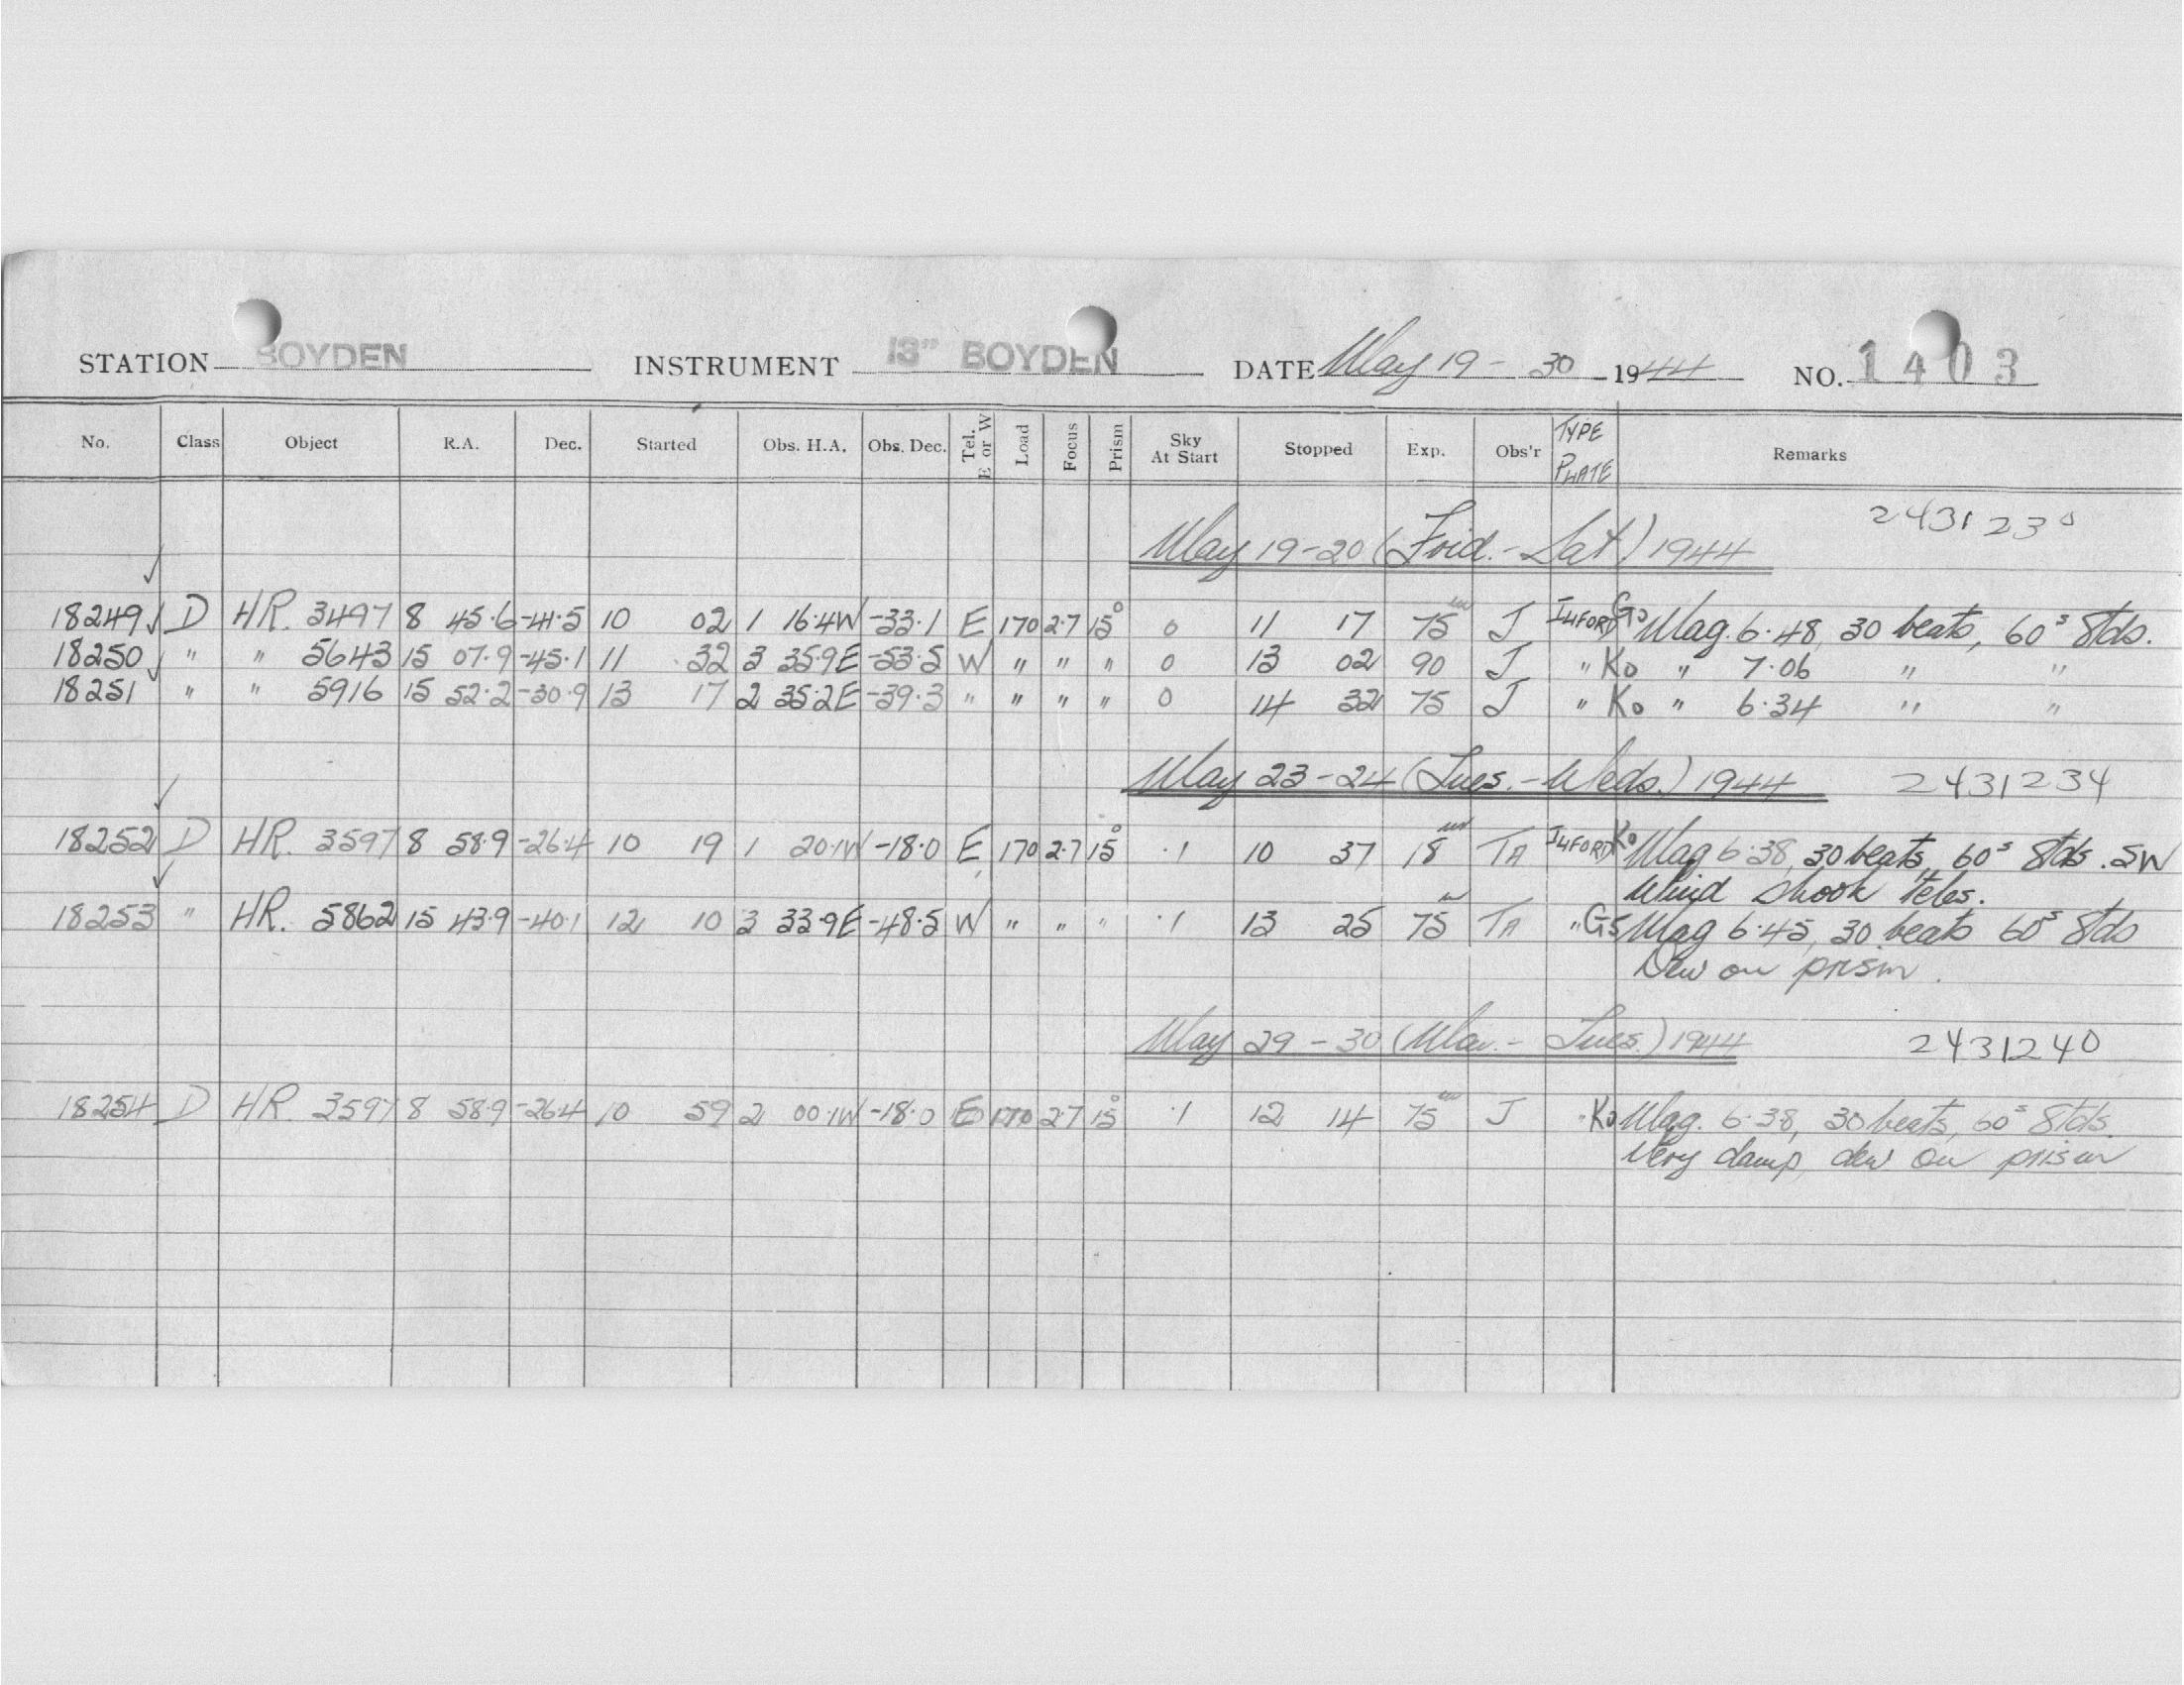 STATION BOYDEN INSTRUMENT 13" BOYDEN DATE May 19 - 30 1944 NO. 1403
No. Class Object R.A. Dec. Started Obs. H.A. Obs. Dec. Tel. E or W Load Focus Prism Sky At Start Stopped Exp. Obs'r TYPE PLATE Remarks
May 19-20 (Frid. - Sat) 1944 2431230
18249 ✓ D HR. 3497 8 45.6 -41.5 10 02 1 16.4W -33.1 E 170 2.7 15° 0 11 17 75 J ILFORD G5 Mag. 6.48, 30 beats, 60s Stds.
18250 ✓ " " 5643 15 07.9 -45.1 11 32 3 35.9E -53.5 W " " " 0 13 02 90 J " K0 " 7.06 " "
18251 " " 5916 15 52.2 -30.9 13 17 2 35.2E -39.3 " " " " 0 14 32 75 J " K0 " 6.34 " "
May 23-24 (Tues. - Weds.) 1944 2431234
18252 D HR. 3597 8 58.9 -26.4 10 19 1 20.1W -18.0 E 170 2.7 15° .1 10 37 18 TA ILFORD K0 Mag 6.38, 30 beats, 60s Stds. SW
Wind shook teles.
18253 " HR. 5862 15 43.9 -40.1 12 10 3 33.9E -48.5 W " " " .1 13 25 75 TA " G5 Mag 6.45, 30 beats 60s Stds
Dew on prism.
May 29 - 30 (Mon. - Tues.) 1944 2431240
18254 D HR. 3597 8 58.9 -26.4 10 59 2 00.1W -18.0 E 170 2.7 15° .1 12 14 75 J " K0 Mag. 6.38, 30 beats, 60s Stds.
Very damp, dew on prism